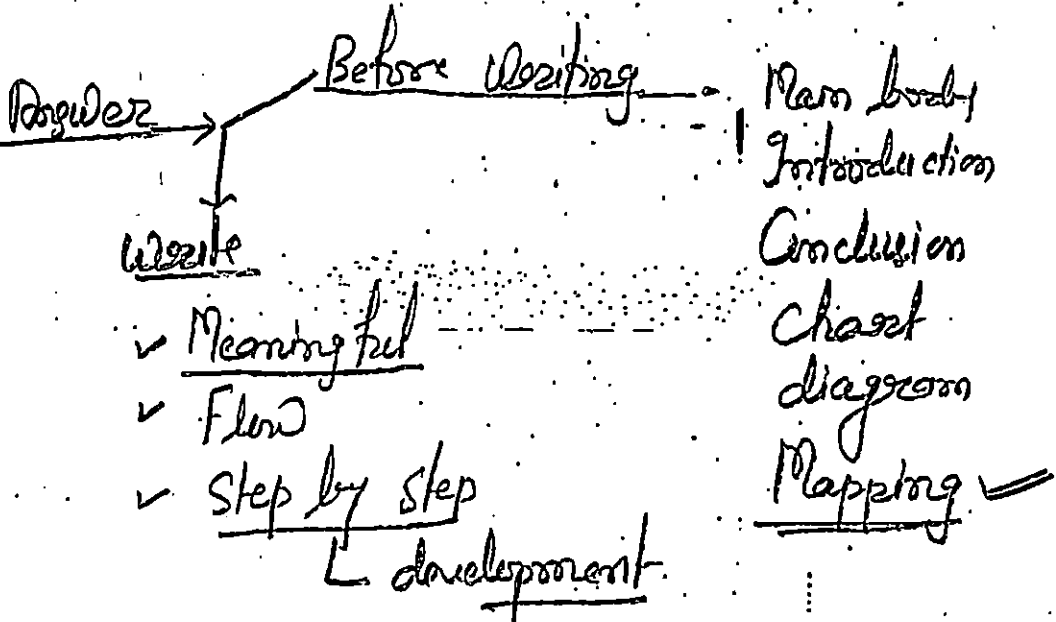 Answer
Before Writing
Main body
Introduction
Conclusion
Chart
diagram
Mapping
Write
Meaningful
Flow
Step by step
development